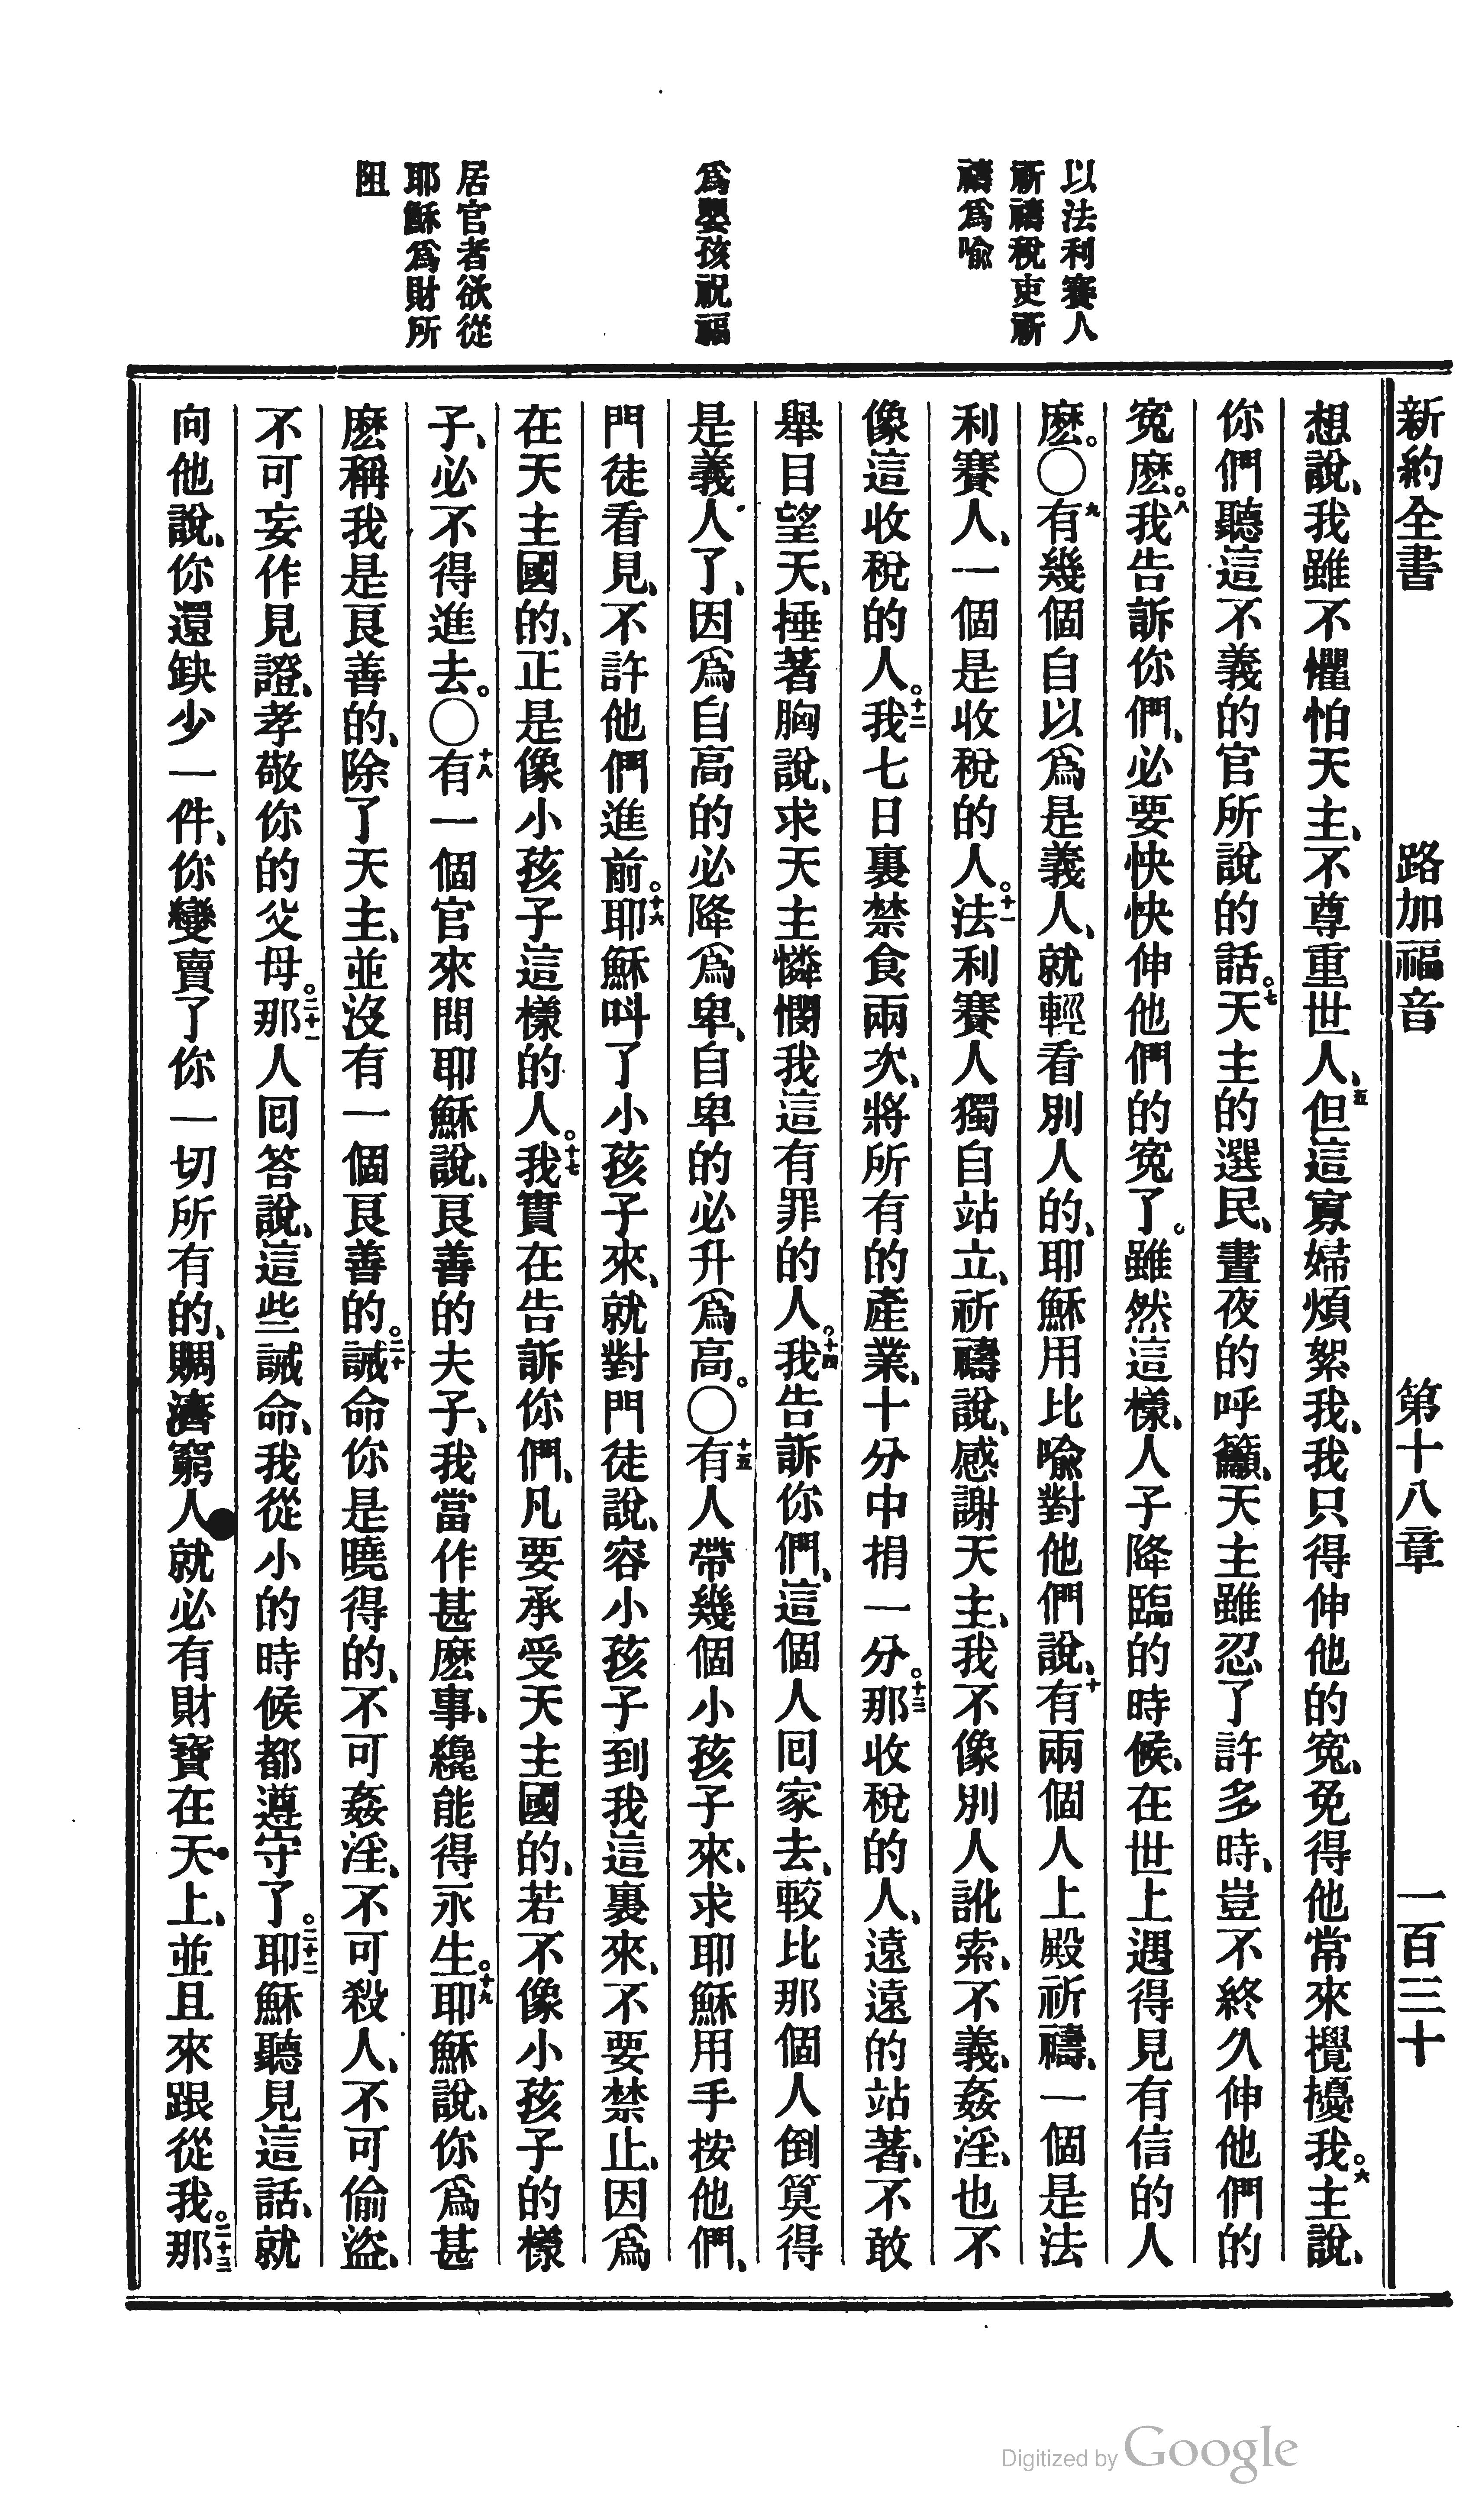 新約全書　路加福音　第十八章　一百三十
以法利賽人
祈禱稅吏祈
禱爲喻
爲嬰孩祝福
居官者欲從
耶穌爲財所
阻
想說、我雖不懼怕天主、不尊重世人、五但這寡婦煩絮我、我只得伸他的寃、免得他常來攪擾我。六主說、
你們聽這不義的官所說的話。七天主的選民、晝夜的呼籲、天主雖忍了許多時、豈不終久伸他們的
寃麽。八我告訴你們、必要快快伸他們的寃了。雖然這樣、人子降臨的時候、在世上遇得見有信的人
麽。〇九有幾個自以爲是義人、就輕看別人的、耶穌用比喻對他們說、十有兩個人上殿祈禱、一個是法
利賽人、一個是收稅的人。十一法利賽人獨自站立、祈禱說、感謝天主、我不像別人訛索、不義、姦淫、也不
像這收稅的人。十二我七日裏禁食兩次、將所有的產業、十分中捐一分。十三那收稅的人、遠遠的站著、不敢
舉目望天、捶著胸說、求天主憐憫我這有罪的人。十四我告訴你們、這個人回家去、較比那個人倒算得
是義人了、因爲自高的必降爲卑、自卑的必升爲高。〇十五有人帶幾個小孩子來、求耶穌用手按他們、
門徒看見、不許他們進前。十六耶穌呌了小孩子來、就對門徒說、容小孩子到我這裏來、不要禁止、因爲
在天主國的、正是像小孩子這樣的人。十七我實在告訴你們、凡要承受天主國的、若不像小孩子的樣
子、必不得進去。〇十八有一個官來問耶穌說、良善的夫子、我當作甚麽事、纔能得永生。十九耶穌說、你爲甚
麽稱我是良善的、除了天主、並沒有一個良善的。二十誡命你是曉得的、不可姦淫、不可殺人、不可偷盜、
不可妄作見證、孝敬你的父母。二十一那人回答說、這些誡命、我從小的時候都遵守了。二十二耶穌聽見這話、就
向他說、你還缺少一件、你變賣了你一切所有的、賙濟窮人、就必有財寶在天上、並且來跟從我。二十三那
Digitized by Google